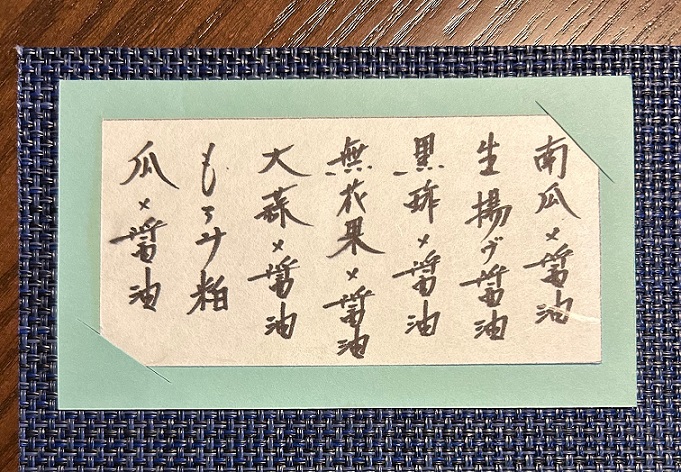 南瓜×醤油
生揚げ醤油
黒酢×醤油
無花果×醤油
大蒜×醤油
もろみ粕
瓜×醤油